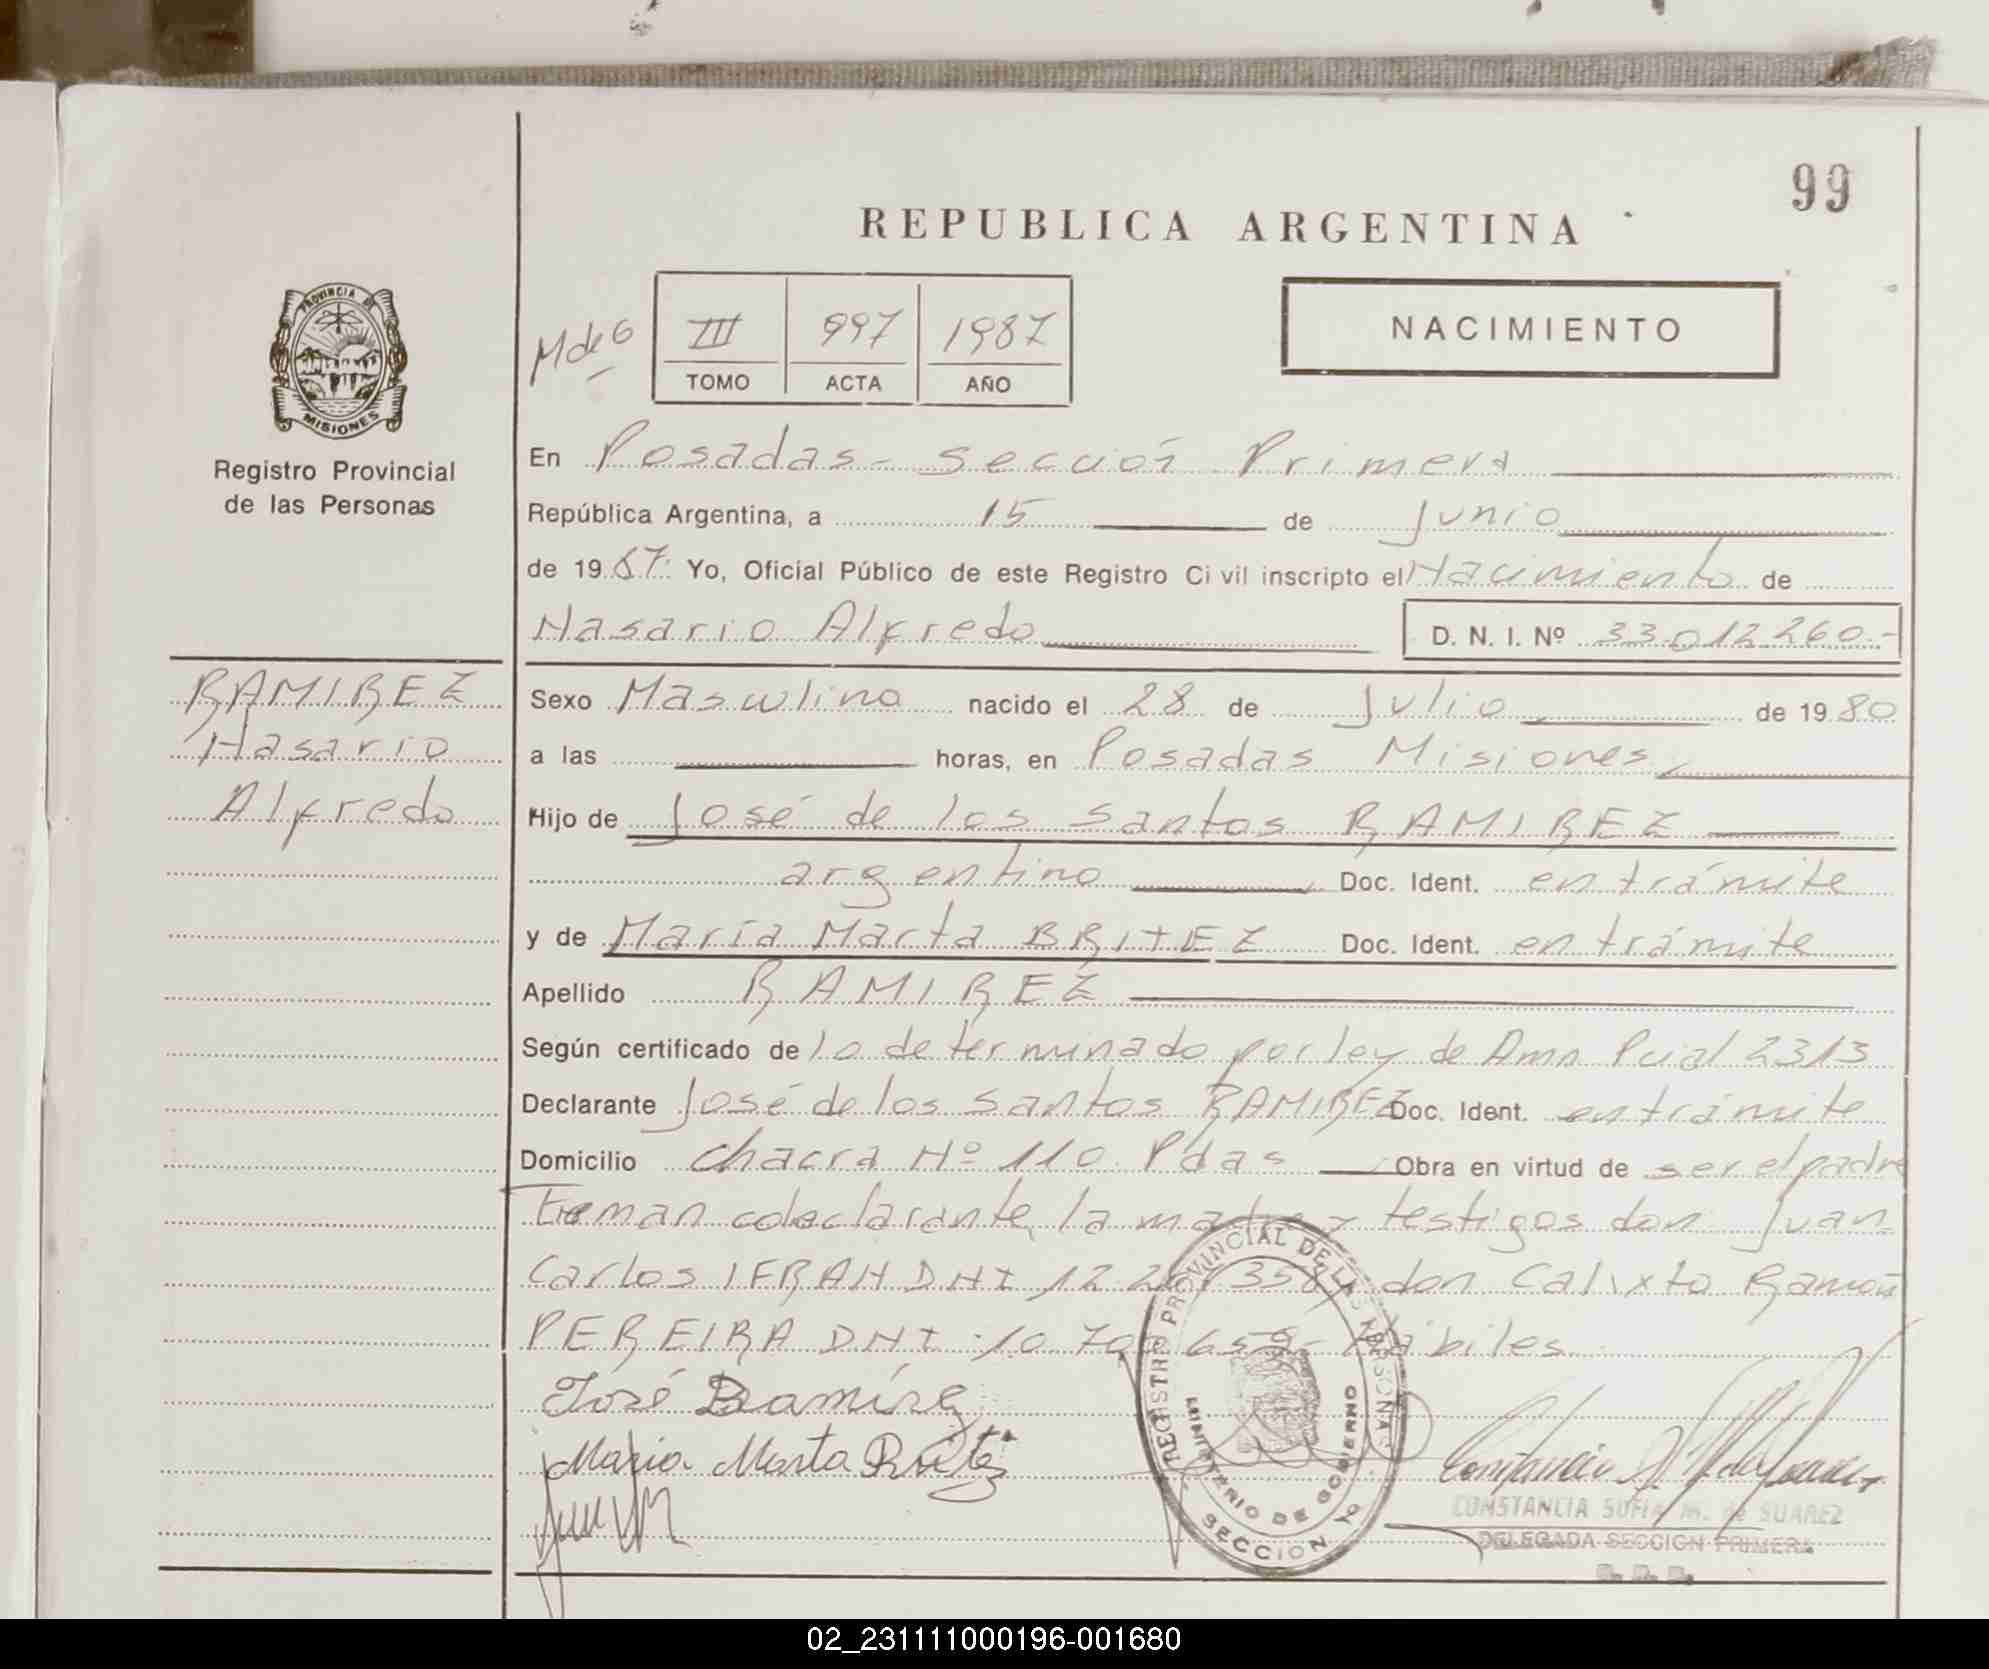 99
REPUBLICA ARGENTINA
PROVINCIA DE
MISIONES
Registro Provincial
de las Personas
M de G
III 997 1987
TOMO ACTA AÑO
NACIMIENTO
En Posadas - sección Primera
República Argentina, a 15 de Junio
de 1987. Yo, Oficial Público de este Registro Civil inscripto el Nacimiento de
Nasario Alfredo D. N. I. Nº 33.012.260.-
RAMIREZ
Nasario
Alfredo
Sexo Masculino nacido el 28 de Julio de 1980
a las horas, en Posadas Misiones
Hijo de José de los Santos RAMIREZ
argentino Doc. Ident. en trámite
y de María Marta BRITEZ Doc. Ident. en trámite
Apellido RAMIREZ
Según certificado de lo determinado por ley de Amn Pcial 2313
Declarante José de los Santos RAMIREZ Doc. Ident. en trámite
Domicilio Chacra Nº 110 Pdas Obra en virtud de ser el padre
Firman codeclarante la madre y testigos don Juan
Carlos IFRAN DNI 12 358 don Calixto Ramón
PEREIRA DNI 10 70 659 - Hábiles
José Ramírez
María Marta Britez
REGISTRO PROVINCIAL DE LAS PERSONAS
MINISTERIO DE GOBIERNO
SECCION 1º
CONSTANCIA SOFIA M. de SUAREZ
DELEGADA SECCION PRIMERA
02_231111000196-001680